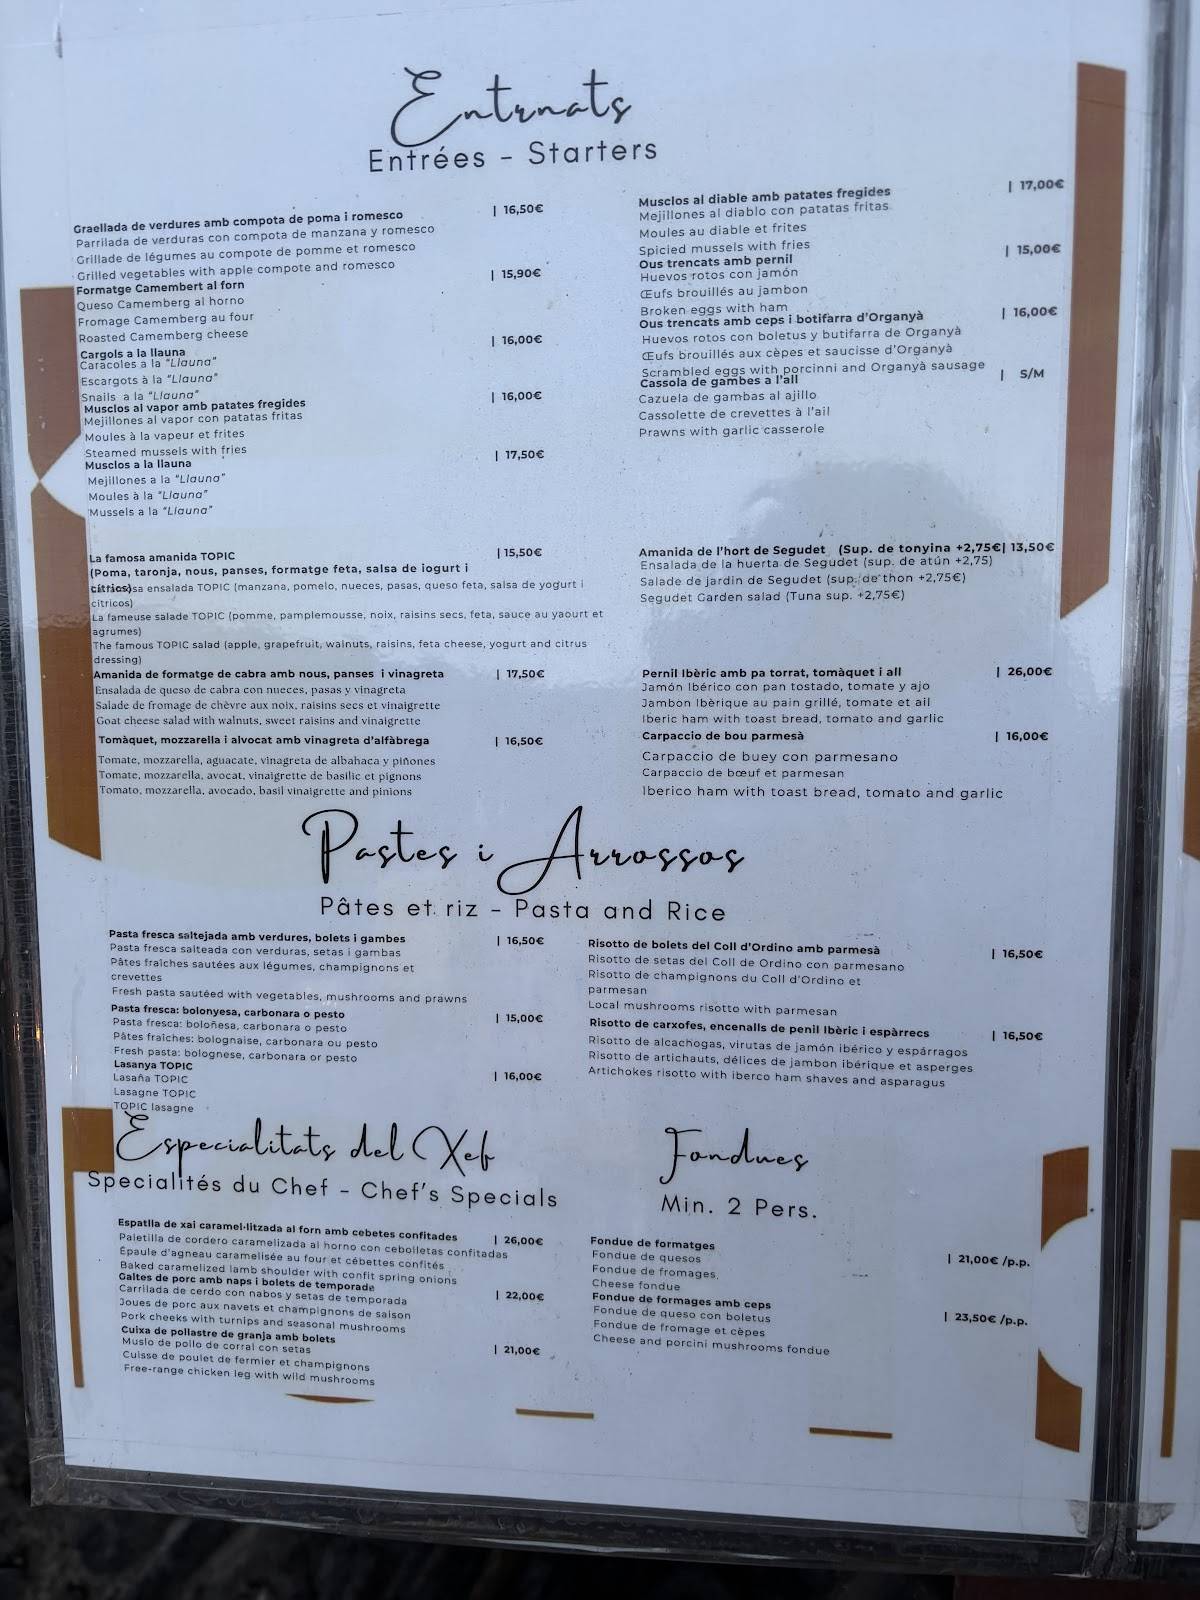 Entrnats
Entrées - Starters
Graellada de verdures amb compota de poma i romesco | 16,50€
Parrilada de verduras con compota de manzana y romesco
Grillade de légumes au compote de pomme et romesco
Grilled vegetables with apple compote and romesco
Formatge Camembert al forn | 15,90€
Queso Camemberg al horno
Fromage Camemberg au four
Roasted Camemberg cheese
Cargols a la llauna | 16,00€
Caracoles a la "Llauna"
Escargots à la "Llauna"
Snails a la "Llauna"
Musclos al vapor amb patates fregides | 16,00€
Mejillones al vapor con patatas fritas
Moules à la vapeur et frites
Steamed mussels with fries
Musclos a la llauna | 17,50€
Mejillones a la "Llauna"
Moules à la "Llauna"
Mussels a la "Llauna"
Musclos al diable amb patates fregides | 17,00€
Mejillones al diablo con patatas fritas
Moules au diable et frites
Spicied mussels with fries
Ous trencats amb pernil | 15,00€
Huevos rotos con jamón
Œufs brouillés au jambon
Broken eggs with ham
Ous trencats amb ceps i botifarra d'Organyà | 16,00€
Huevos rotos con boletus y butifarra de Organyà
Œufs brouillés aux cèpes et saucisse d'Organyà
Scrambled eggs with porcinni and Organyà sausage
Cassola de gambes a l'all | S/M
Cazuela de gambas al ajillo
Cassolette de crevettes à l'ail
Prawns with garlic casserole
La famosa amanida TOPIC | 15,50€
(Poma, taronja, nous, panses, formatge feta, salsa de iogurt i
cítrics)
ensalada TOPIC (manzana, pomelo, nueces, pasas, queso feta, salsa de yogurt i
citricos)
La fameuse salade TOPIC (pomme, pamplemousse, noix, raisins secs, feta, sauce au yaourt et
agrumes)
The famous TOPIC salad (apple, grapefruit, walnuts, raisins, feta cheese, yogurt and citrus
dressing)
Amanida de formatge de cabra amb nous, panses i vinagreta | 17,50€
Ensalada de queso de cabra con nueces, pasas y vinagreta
Salade de fromage de chèvre aux noix, raisins secs et vinaigrette
Goat cheese salad with walnuts, sweet raisins and vinaigrette
Tomàquet, mozzarella i alvocat amb vinagreta d'alfàbrega | 16,50€
Tomate, mozzarella, aguacate, vinagreta de albahaca y piñones
Tomate, mozzarella, avocat, vinaigrette de basilic et pignons
Tomato, mozzarella, avocado, basil vinaigrette and pinions
Amanida de l'hort de Segudet (Sup. de tonyina +2,75€| 13,50€
Ensalada de la huerta de Segudet (sup. de atún +2,75)
Salade de jardin de Segudet (sup. de thon +2,75€)
Segudet Garden salad (Tuna sup. +2,75€)
Pernil Ibèric amb pa torrat, tomàquet i all | 26,00€
Jamón Ibérico con pan tostado, tomate y ajo
Jambon Ibèrique au pain grillé, tomate et ail
Iberic ham with toast bread, tomato and garlic
Carpaccio de bou parmesà | 16,00€
Carpaccio de buey con parmesano
Carpaccio de bœuf et parmesan
Iberico ham with toast bread, tomato and garlic
Pastes i Arrossos
Pâtes et riz - Pasta and Rice
Pasta fresca saltejada amb verdures, bolets i gambes | 16,50€
Pasta fresca salteada con verduras, setas i gambas
Pâtes fraîches sautées aux légumes, champignons et
crevettes
Fresh pasta sautéed with vegetables, mushrooms and prawns
Pasta fresca: bolonyesa, carbonara o pesto | 15,00€
Pasta fresca: boloñesa, carbonara o pesto
Pâtes fraîches: bolognaise, carbonara ou pesto
Fresh pasta: bolognese, carbonara or pesto
Lasanya TOPIC | 16,00€
Lasaña TOPIC
Lasagne TOPIC
TOPIC lasagne
Risotto de bolets del Coll d'Ordino amb parmesà | 16,50€
Risotto de setas del Coll de Ordino con parmesano
Risotto de champignons du Coll d'Ordino et
parmesan
Local mushrooms risotto with parmesan
Risotto de carxofes, encenalls de penil Ibèric i espàrrecs | 16,50€
Risotto de alcachogas, virutas de jamón ibérico y espárragos
Risotto de artichauts, délices de jambon ibérique et asperges
Artichokes risotto with iberco ham shaves and asparagus
Especialitats del Xef
Specialités du Chef - Chef's Specials
Espatlla de xai caramel·litzada al forn amb cebetes confitades | 26,00€
Paletilla de cordero caramelizada al horno con cebolletas confitadas
Épaule d'agneau caramelisée au four et cébettes confités
Baked caramelized lamb shoulder with confit spring onions
Galtes de porc amb naps i bolets de temporade | 22,00€
Carrilada de cerdo con nabos y setas de temporada
Joues de porc aux navets et champignons de saison
Pork cheeks with turnips and seasonal mushrooms
Cuixa de pollastre de granja amb bolets | 21,00€
Muslo de pollo de corral con setas
Cuisse de poulet de fermier et champignons
Free-range chicken leg with wild mushrooms
Fondues
Min. 2 Pers.
Fondue de formatges | 21,00€ /p.p.
Fondue de quesos
Fondue de fromages,
Cheese fondue
Fondue de formages amb ceps | 23,50€ /p.p.
Fondue de queso con boletus
Fondue de fromage et cèpes
Cheese and porcini mushrooms fondue